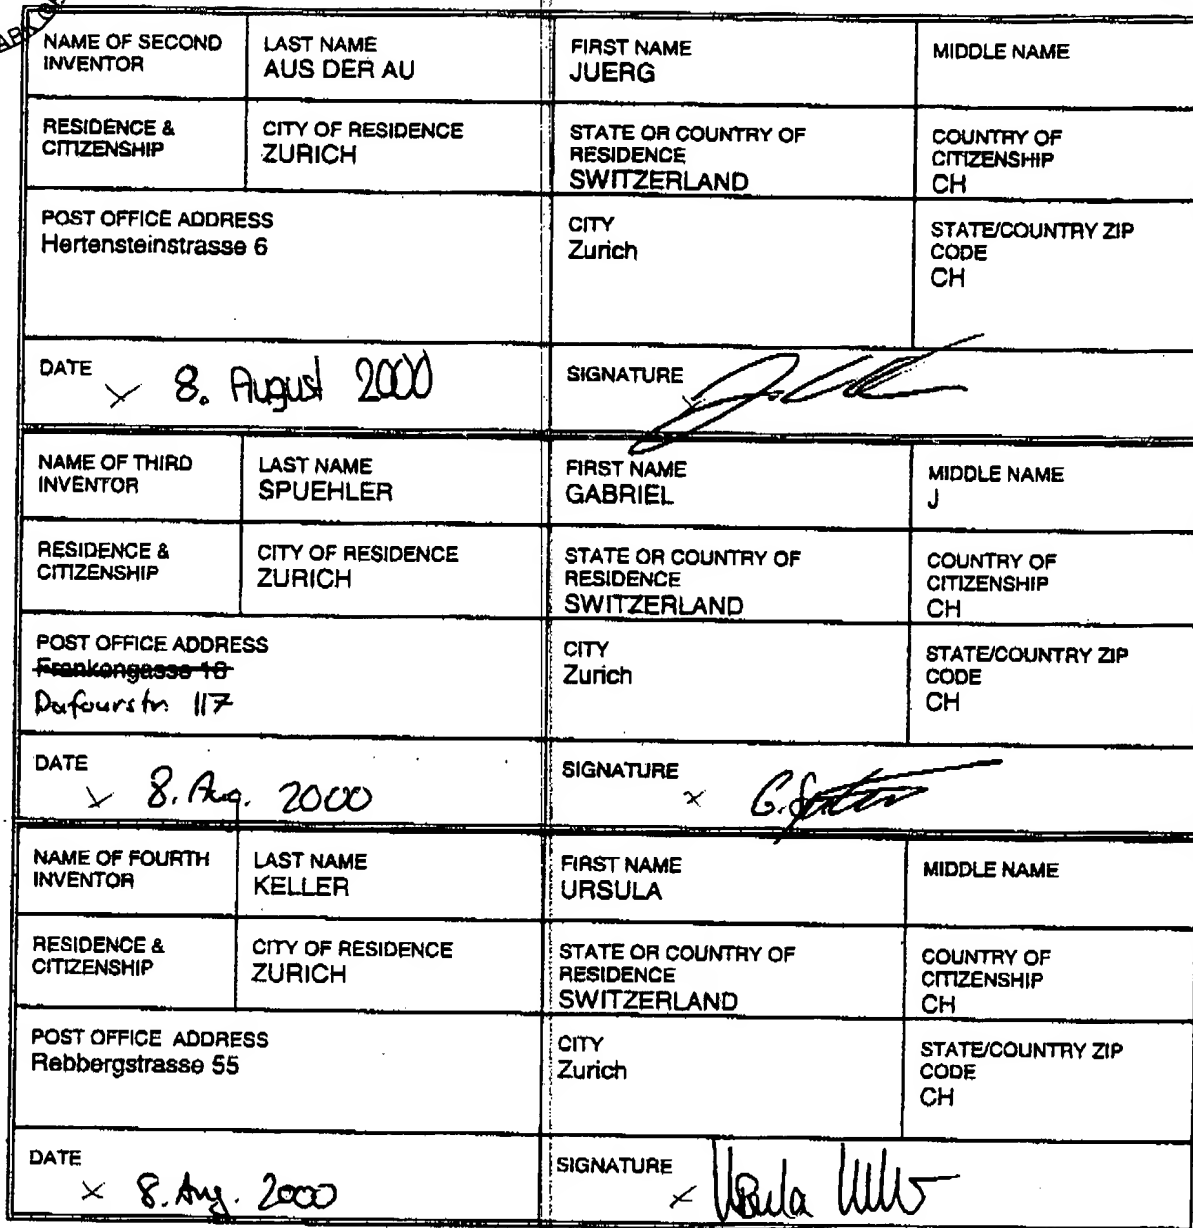 NAME OF SECOND INVENTOR
LAST NAME
AUS DER AU
FIRST NAME
JUERG
MIDDLE NAME
RESIDENCE &
CITIZENSHIP
CITY OF RESIDENCE
ZURICH
STATE OR COUNTRY OF
RESIDENCE
SWITZERLAND
COUNTRY OF
CITIZENSHIP
CH
POST OFFICE ADDRESS
Hertensteinstrasse 6
CITY
Zurich
STATE/COUNTRY ZIP
CODE
CH
DATE
x 8. August 2000
SIGNATURE
x
NAME OF THIRD
INVENTOR
LAST NAME
SPUEHLER
FIRST NAME
GABRIEL
MIDDLE NAME
J
RESIDENCE &
CITIZENSHIP
CITY OF RESIDENCE
ZURICH
STATE OR COUNTRY OF
RESIDENCE
SWITZERLAND
COUNTRY OF
CITIZENSHIP
CH
POST OFFICE ADDRESS
Frankengasse 18
Dufourstr. 117
CITY
Zurich
STATE/COUNTRY ZIP
CODE
CH
DATE
x 8. Aug. 2000
SIGNATURE
x G.
NAME OF FOURTH
INVENTOR
LAST NAME
KELLER
FIRST NAME
URSULA
MIDDLE NAME
RESIDENCE &
CITIZENSHIP
CITY OF RESIDENCE
ZURICH
STATE OR COUNTRY OF
RESIDENCE
SWITZERLAND
COUNTRY OF
CITIZENSHIP
CH
POST OFFICE ADDRESS
Rebbergstrasse 55
CITY
Zurich
STATE/COUNTRY ZIP
CODE
CH
DATE
x 8. Aug. 2000
SIGNATURE
x Ursula Keller